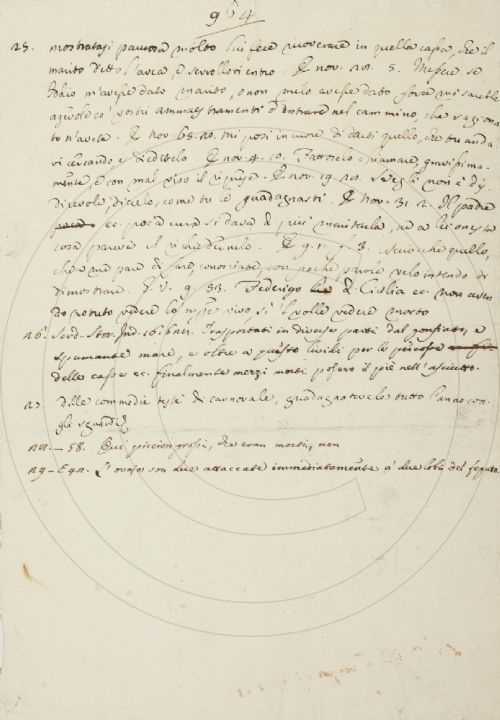 964
25. mostratasi paurosa molto lui fece ricoverare in quella cassa, che il
marito detto l'avea, e serrollovi entro. E nov. 28. 5. Messer se
Iddio m'avesse dato marito, o non me lo avesse dato forse mi sarebbe
agevole co' vostri ammaestramenti d'entrare nel cammino, che ragiona-
to n'avete. E nov. 65. 20. mi posi in cuore di darti quello, che tu anda-
vi cercando e dietelo. E nov. 4. 10. Fattoselo chiamare, gravissima-
mente, e con mal viso il riprese. E nov. 19. 20. s'egli non è di-
dicevole, diccelo, come tu le guadagnasti. E nov. 31. 2. Il padre
ec. poca cura si dava di più maritarla, nè a lei onesta
cosa pareva il richiedernelo. E g. 1. 3. secondo che quello,
che a me pare di fare, conosciate, con poche parole ve lo intendo di
dimostrare. 53. Federigo di Cicilia ec. non aven-
do potuto vedere lo vivo si 'l volle vedere morto
26. Serd. Stor. Ind. 16. Trasportati in diverse parti dal gonfiato, e
spumante mare, e oltre a questo lividi per le percosse
delle casse ec. finalmente mezzi morti posero il piè nell'asciutto.
27. Delle commedie di carnovale, guadagnatevele tutto l'anno con-
gli sguardi
28. – 58. Due piccion grossi, che eran morti, non
29 – son due attaccate immediatamente a' due lobi del fegato